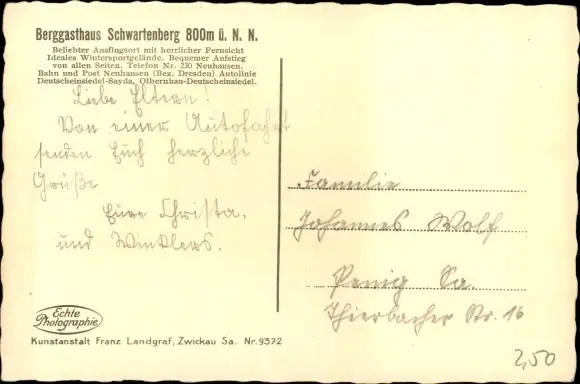 Berggasthaus Schwartenberg 800m ü. N. N.
Beliebter Ausflugsort mit herrlicher Fernsicht
Ideales Wintersportgelände. Bequemer Aufstieg
von allen Seiten. Telefon Nr. 230 Neuhausen.
Bahn und Post Neuhausen (Bez. Dresden) Autolinie
Deutscheinsiedel-Sayda, Olbernhau-Deutscheinsiedel.
Liebe Eltern!
Von einer Autofahrt
senden Euch herzliche
Grüße
Eure Christa,
und Winklers.
Familie
Johannes Wolf
Penig Sa.
Thierbacher Str. 16
Echte
Photographie
Kunstanstalt Franz Landgraf, Zwickau Sa. Nr. 9372
2,50